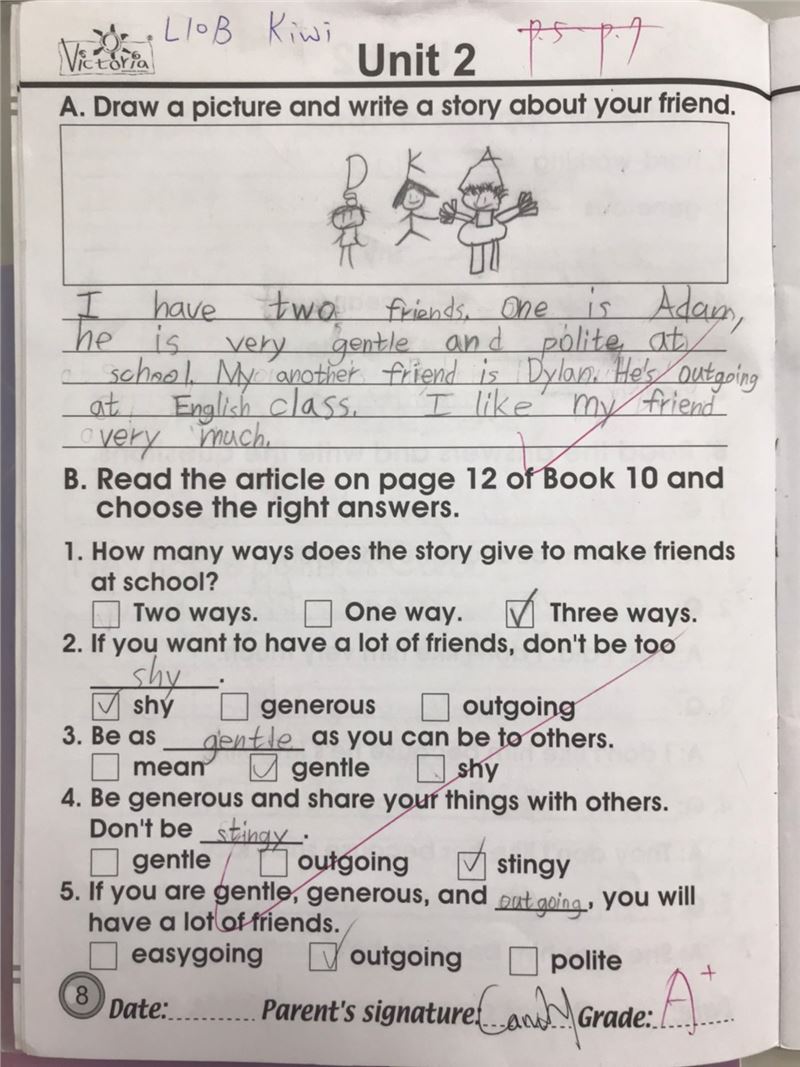 Victoria L10B Kiwi
Unit 2
p.5-p.7
A. Draw a picture and write a story about your friend.
D K A
I have two friends. One is Adam,
he is very gentle and polite at
school. My another friend is Dylan. He's outgoing
at English class. I like my friend
very much.
B. Read the article on page 12 of Book 10 and
choose the right answers.
1. How many ways does the story give to make friends
at school?
Two ways. One way. Three ways.
2. If you want to have a lot of friends, don't be too
shy.
shy generous outgoing
3. Be as gentle as you can be to others.
mean gentle shy
4. Be generous and share your things with others.
Don't be stingy.
gentle outgoing stingy
5. If you are gentle, generous, and outgoing, you will
have a lot of friends.
easygoing outgoing polite
8 Date:.......... Parent's signature: Candy Grade: A+